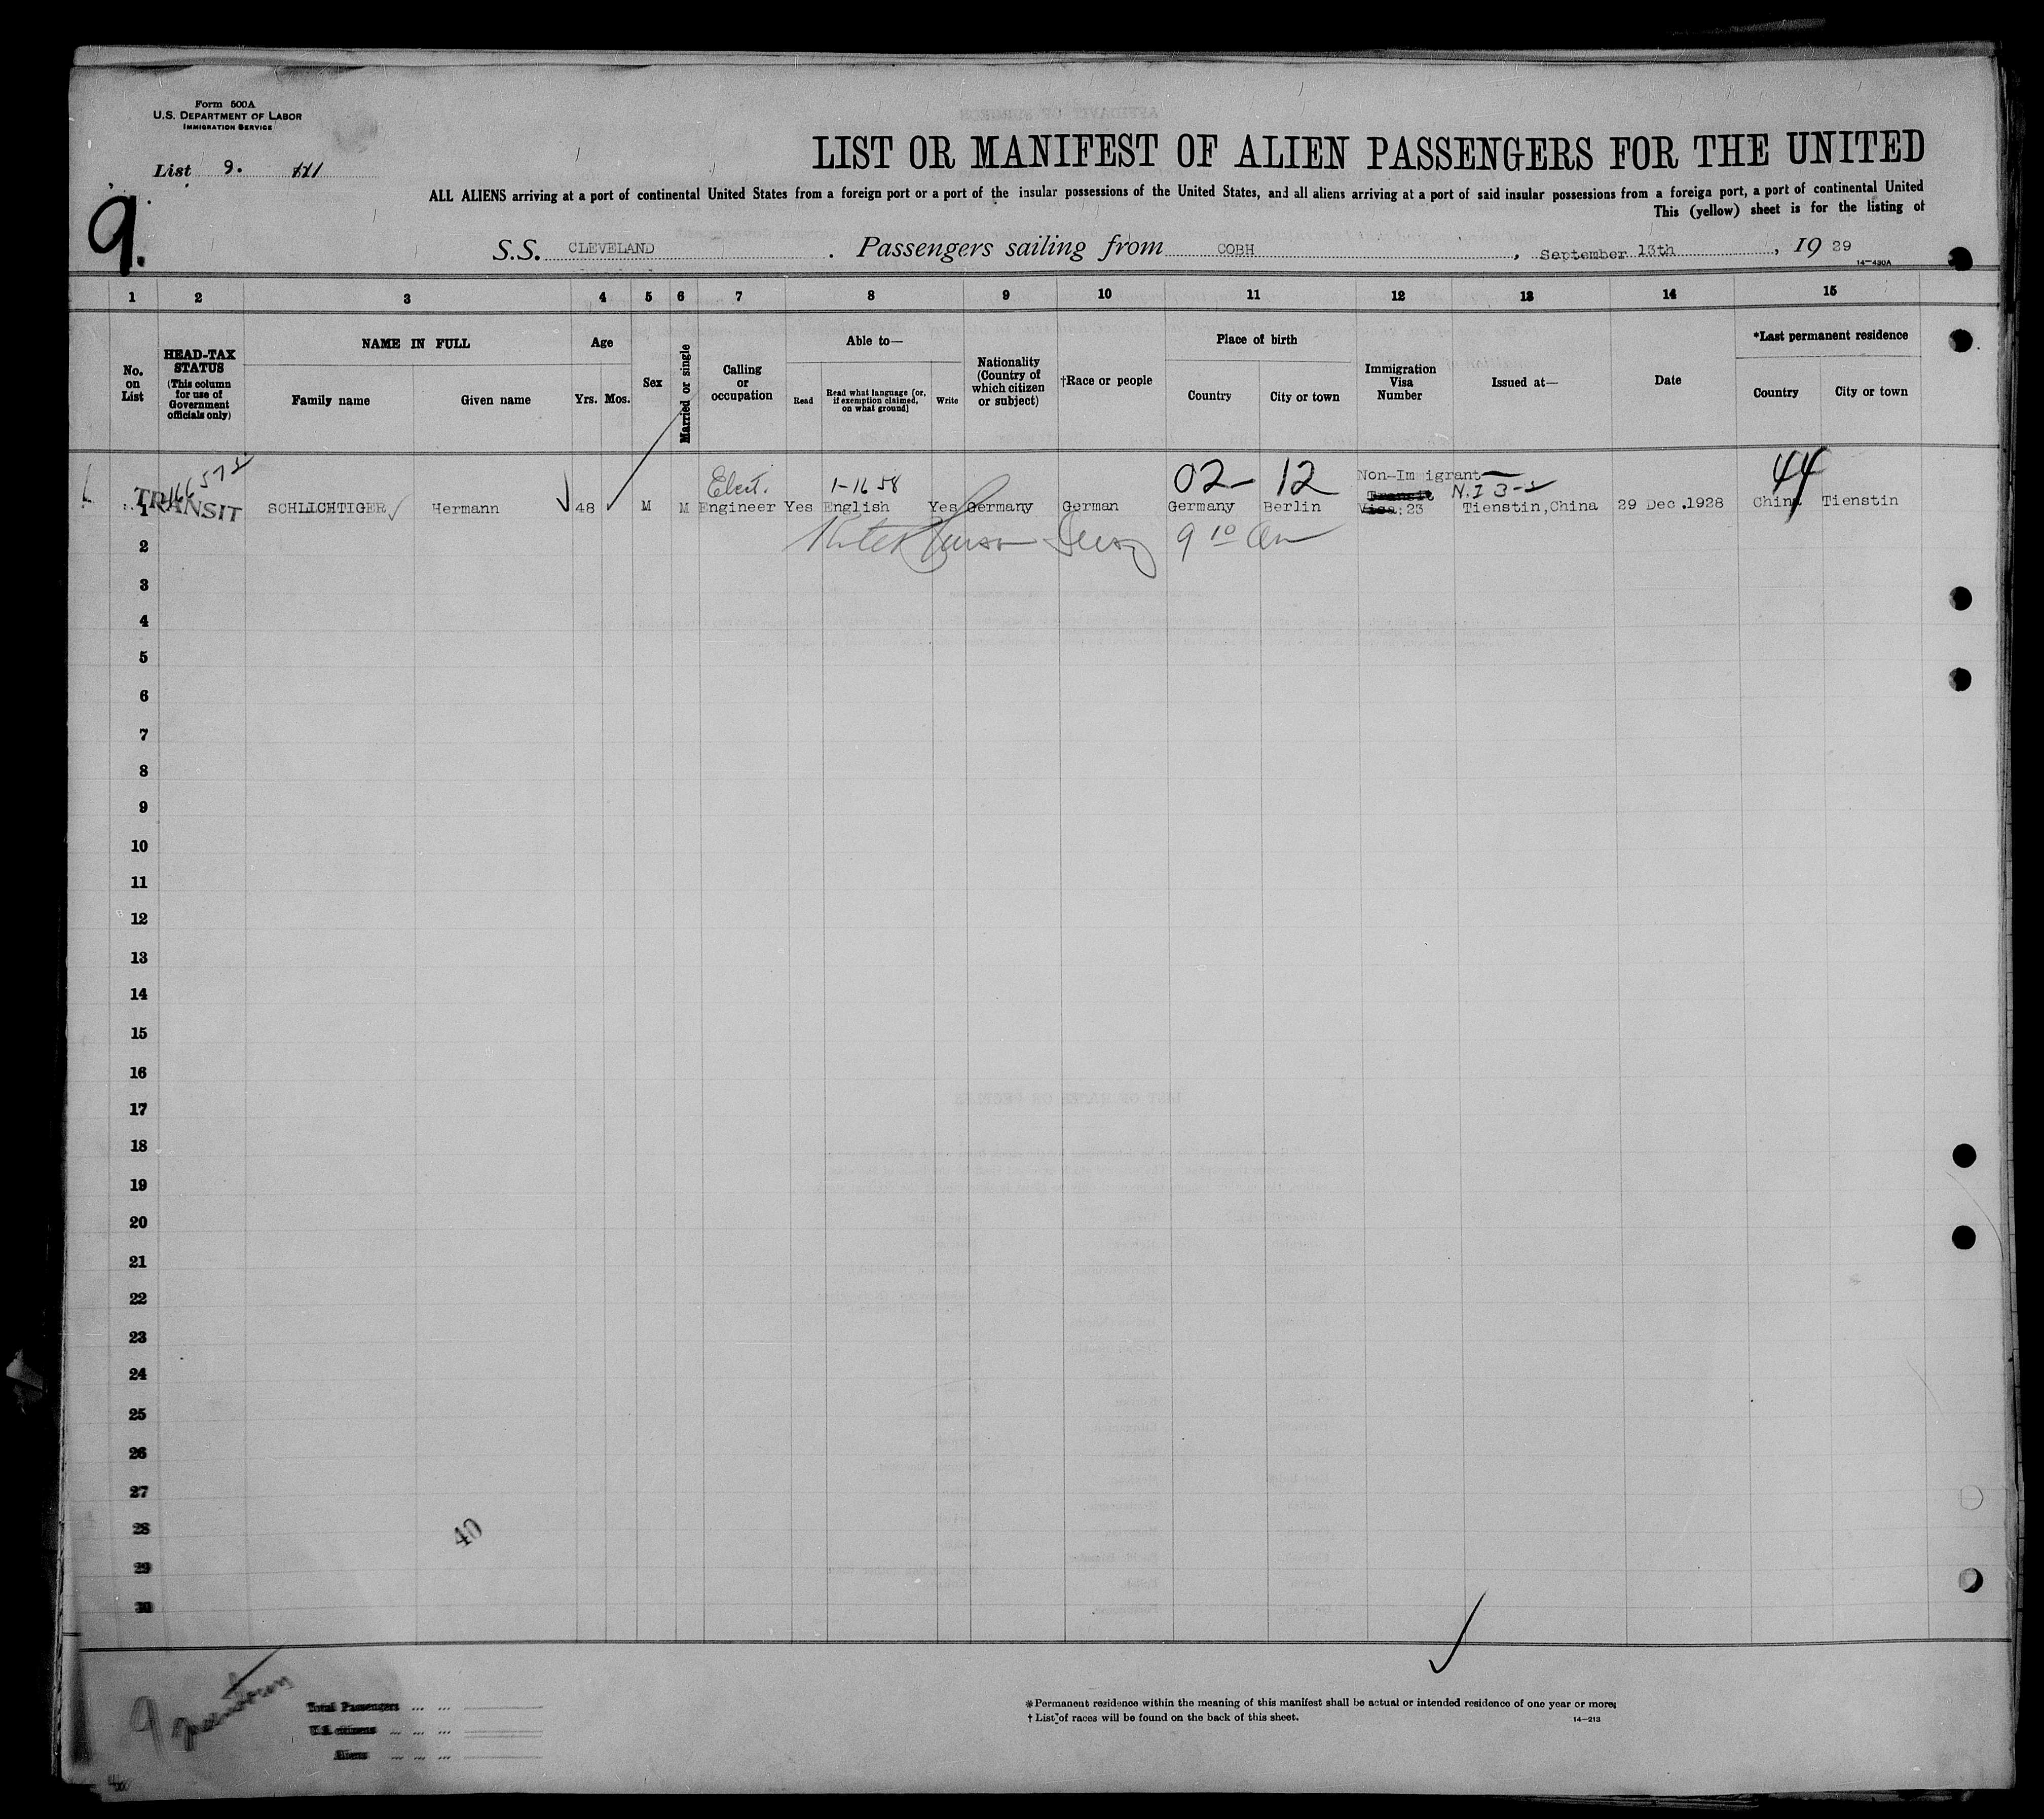 Form 500A
U.S. DEPARTMENT OF LABOR
IMMIGRATION SERVICE
List 9.
9.
LIST OR MANIFEST OF ALIEN PASSENGERS FOR THE UNITED
ALL ALIENS arriving at a port of continental United States from a foreign port or a port of the insular possessions of the United States, and all aliens arriving at a port of said insular possessions from a foreign port, a port of continental United
This (yellow) sheet is for the listing of
S.S. CLEVELAND. Passengers sailing from COBH, September 13th, 19 29
14-430A
1 2 3 4 5 6 7 8 9 10 11 12 13 14 15
No. on List
HEAD-TAX STATUS
(This column for use of Government officials only)
NAME IN FULL
Family name Given name
Age
Yrs. Mos.
Sex
Married or single
Calling or occupation
Able to—
Read
Read what language [or, if exemption claimed, on what ground]
Write
Nationality (Country of which citizen or subject)
†Race or people
Place of birth
Country City or town
Immigration Visa Number
Issued at—
Date
*Last permanent residence
Country City or town
Elect. 1-16 58 02- 12 Non-Immigrant 44
N.I 3-2
1 TRANSIT SCHLICHTIGER Hermann 48 M M Engineer Yes English Yes Germany German Germany Berlin Visa: 23 Tienstin, China 29 Dec. 1928 China Tienstin
9 10
2
3
4
5
6
7
8
9
10
11
12
13
14
15
16
17
18
19
20
21
22
23
24
25
26
27
28
29
30
40
9
Total Passengers ... ...
U.S. citizens ... ... ...
Aliens ... ... ...
*Permanent residence within the meaning of this manifest shall be actual or intended residence of one year or more.
† List of races will be found on the back of this sheet.
14-213